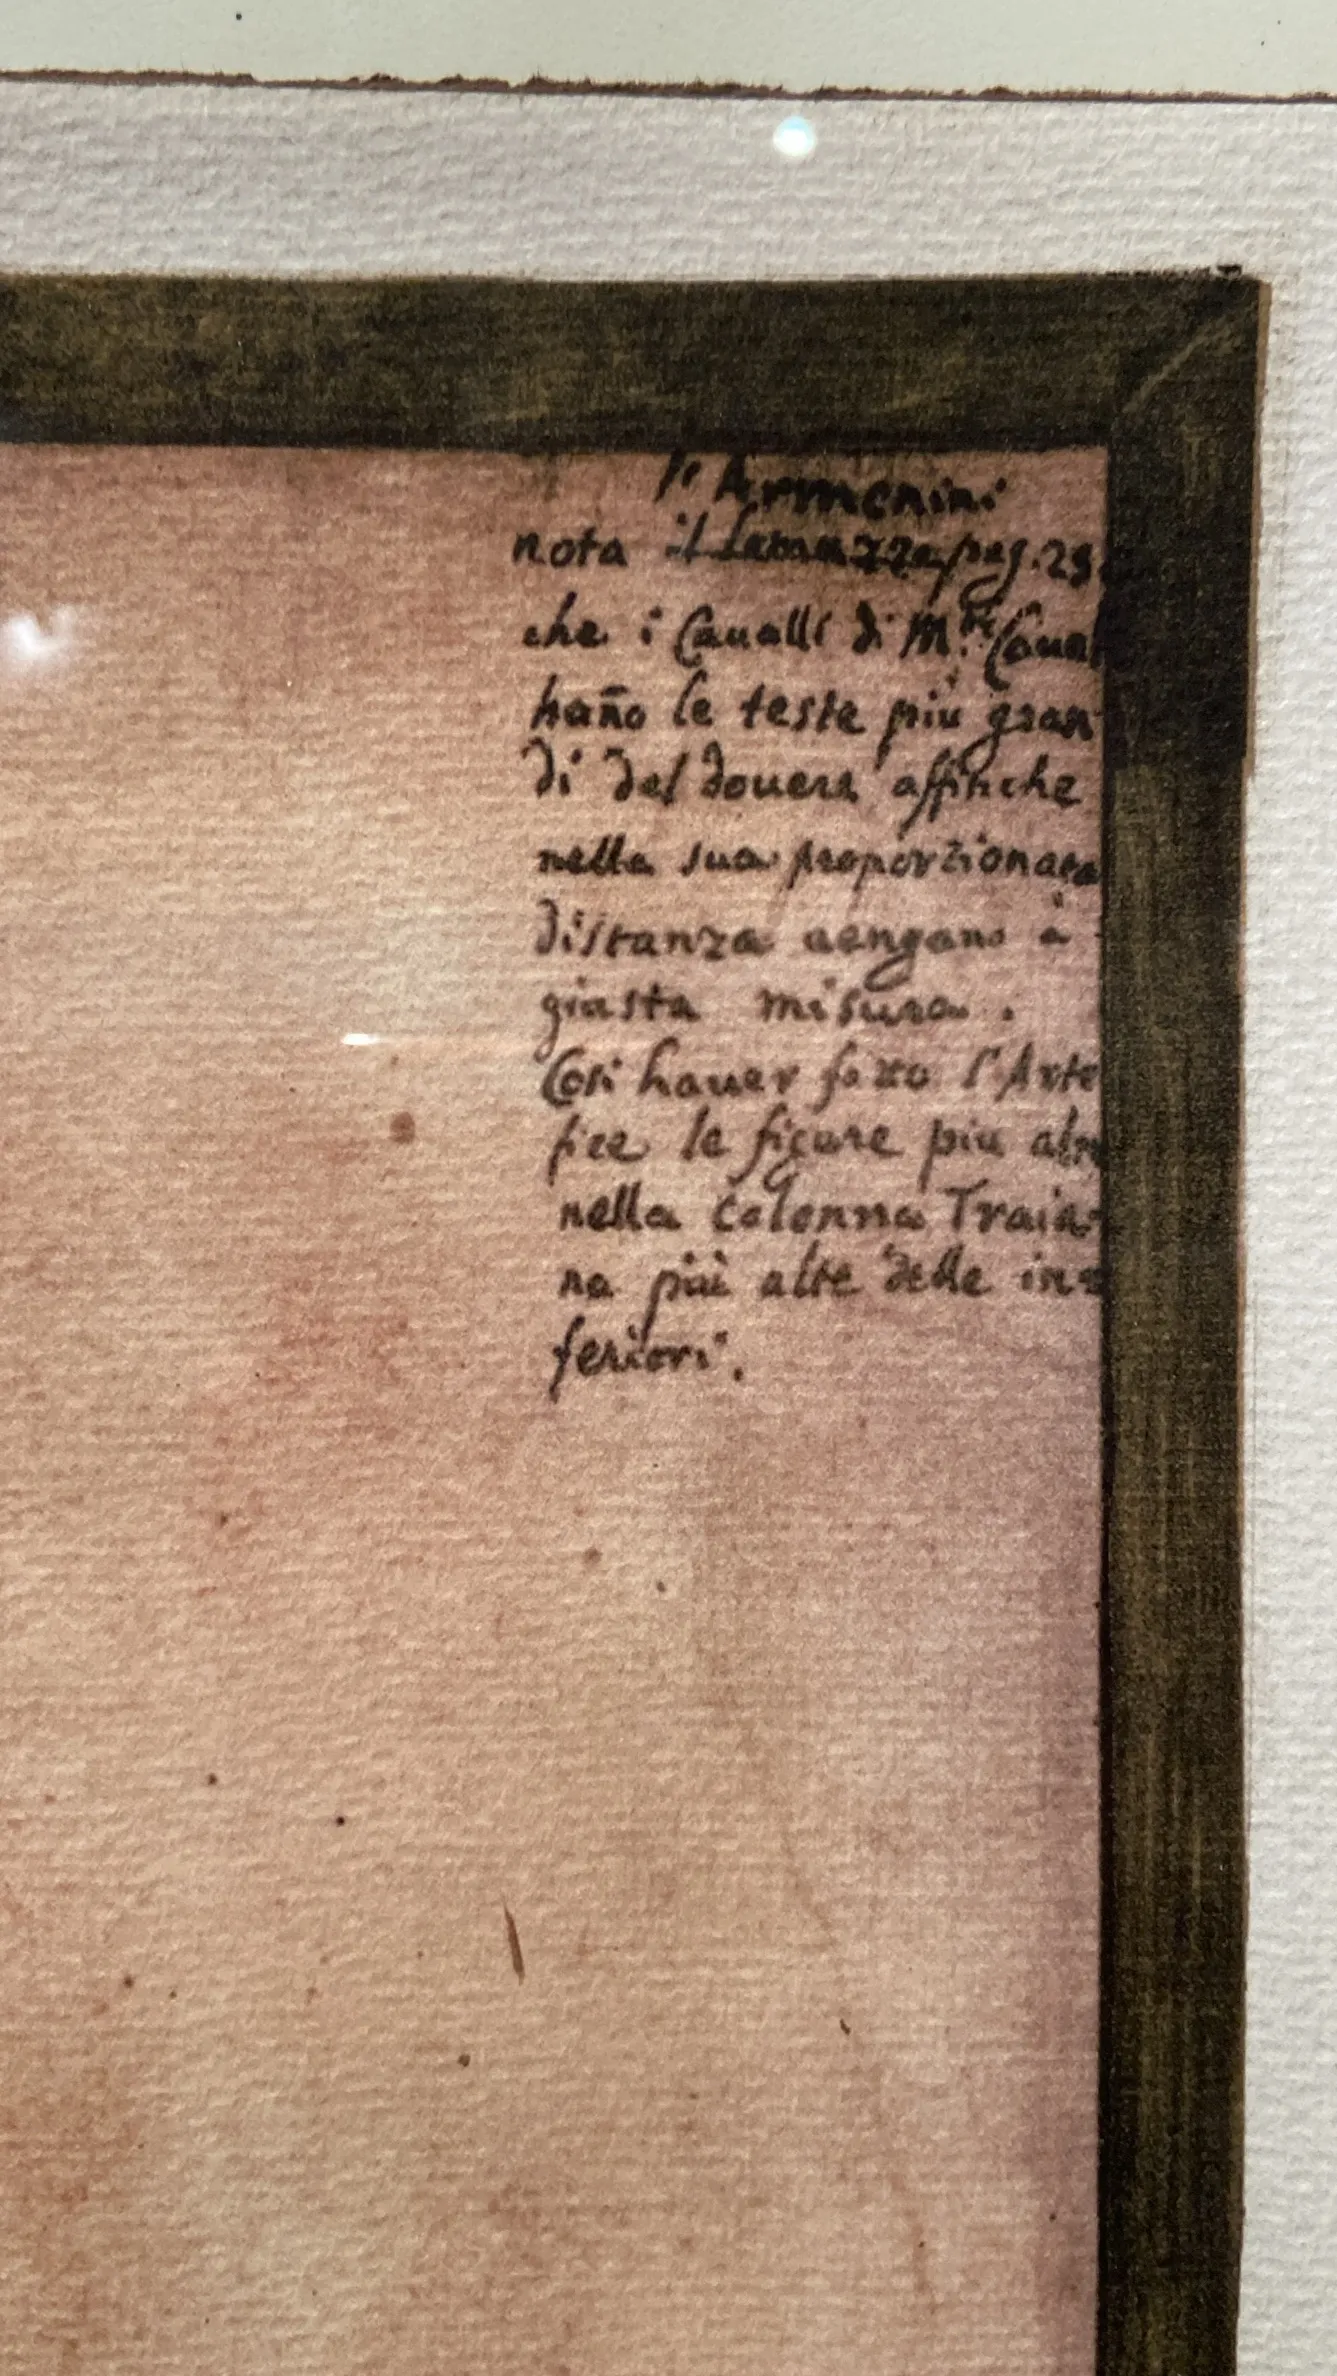 l'Armenini
nota il Lomazzo pag. 29
che i Caualli di M.te Caual
hano le teste più gran
di del douere affinche
nella sua proporzionata
distanza uengano à
giusta misura.
Così hauer fatto l'Arte
fice le figure piu alte
nella Colonna Traia-
na più alte delle in=
feriori.